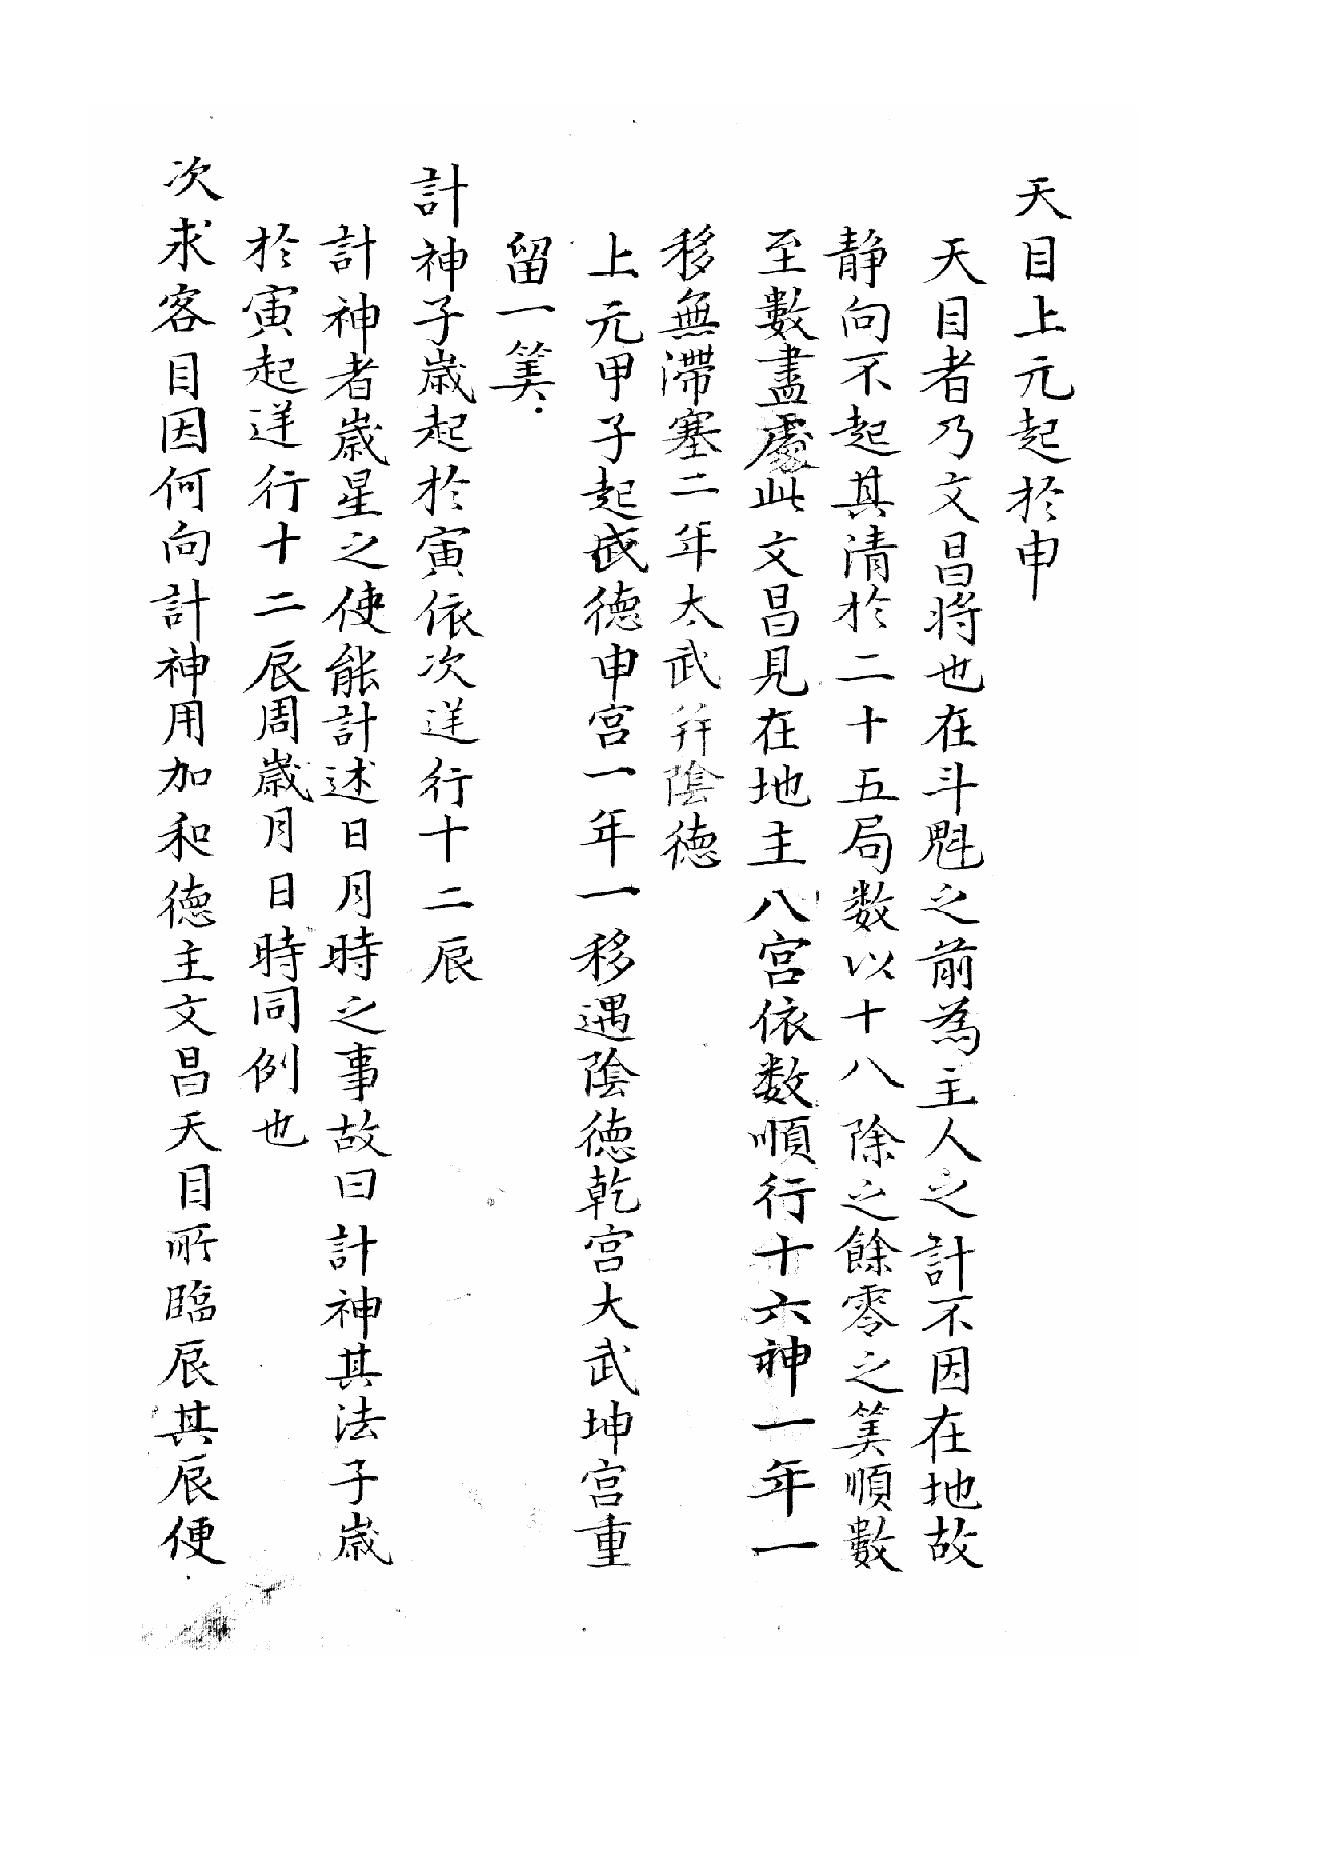 天目上元起於申
天目者乃文昌將也在斗魁之前為主人之計不因在地故
静向不起其清於二十五局数以十八除之餘零之筭順數
至數盡處此文昌見在地主八宮依数順行十六神一年一
移無滯塞二年太武并陰德
上元甲子起武德申宮一年一移遇陰德乾宮大武坤宮重
留一筭
計神子歲起於寅依次逆行十二辰
計神者歲星之使能計述日月時之事故曰計神其法子歲
於寅起逆行十二辰周歲月日時同例也
次求客目因何向計神用加和德主文昌天目所臨辰其辰便